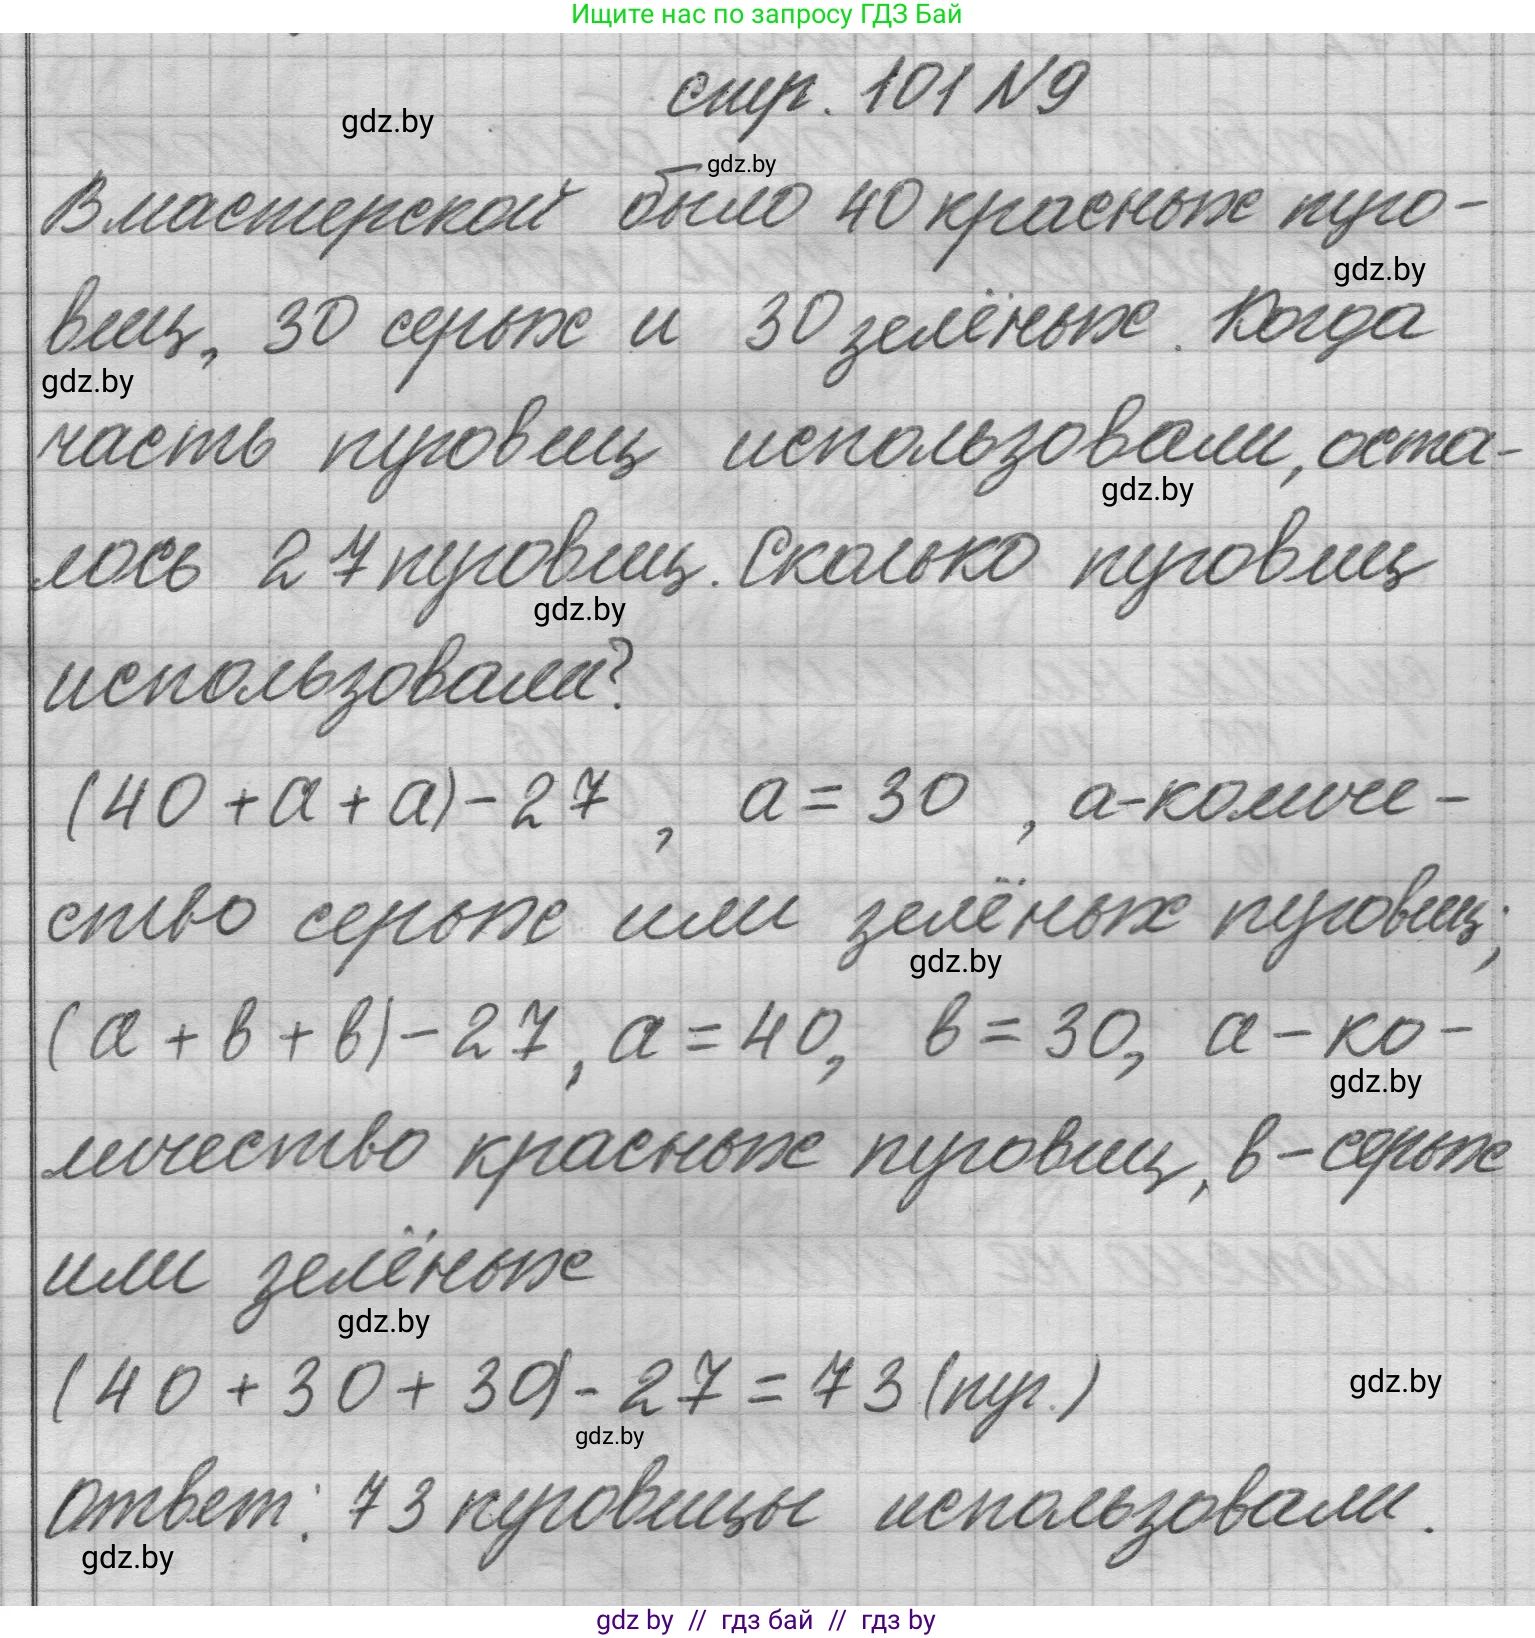 Ищите нас по запросу ГДЗ Бай
стр. 101 №9
gdz.by
gdz.by
В мастерской было 40 красных пуго-
gdz.by
виц, 30 серых и 30 зелёных. Когда
gdz.by
часть пуговиц использовали, оста-
gdz.by
лось 27 пуговиц. Сколько пуговиц
gdz.by
использовали?
(40 + а + а) - 27 , а = 30 , а - количе-
ство серых или зелёных пуговиц;
gdz.by
(а + в + в) - 27, а = 40, в = 30, а - ко-
gdz.by
личество красных пуговиц, в - серых
или зелёных
gdz.by
(40 + 30 + 30) - 27 = 73 (пуг.)
gdz.by
gdz.by
Ответ: 73 пуговицы использовали.
gdz.by
gdz by // гдз бай // гдз by